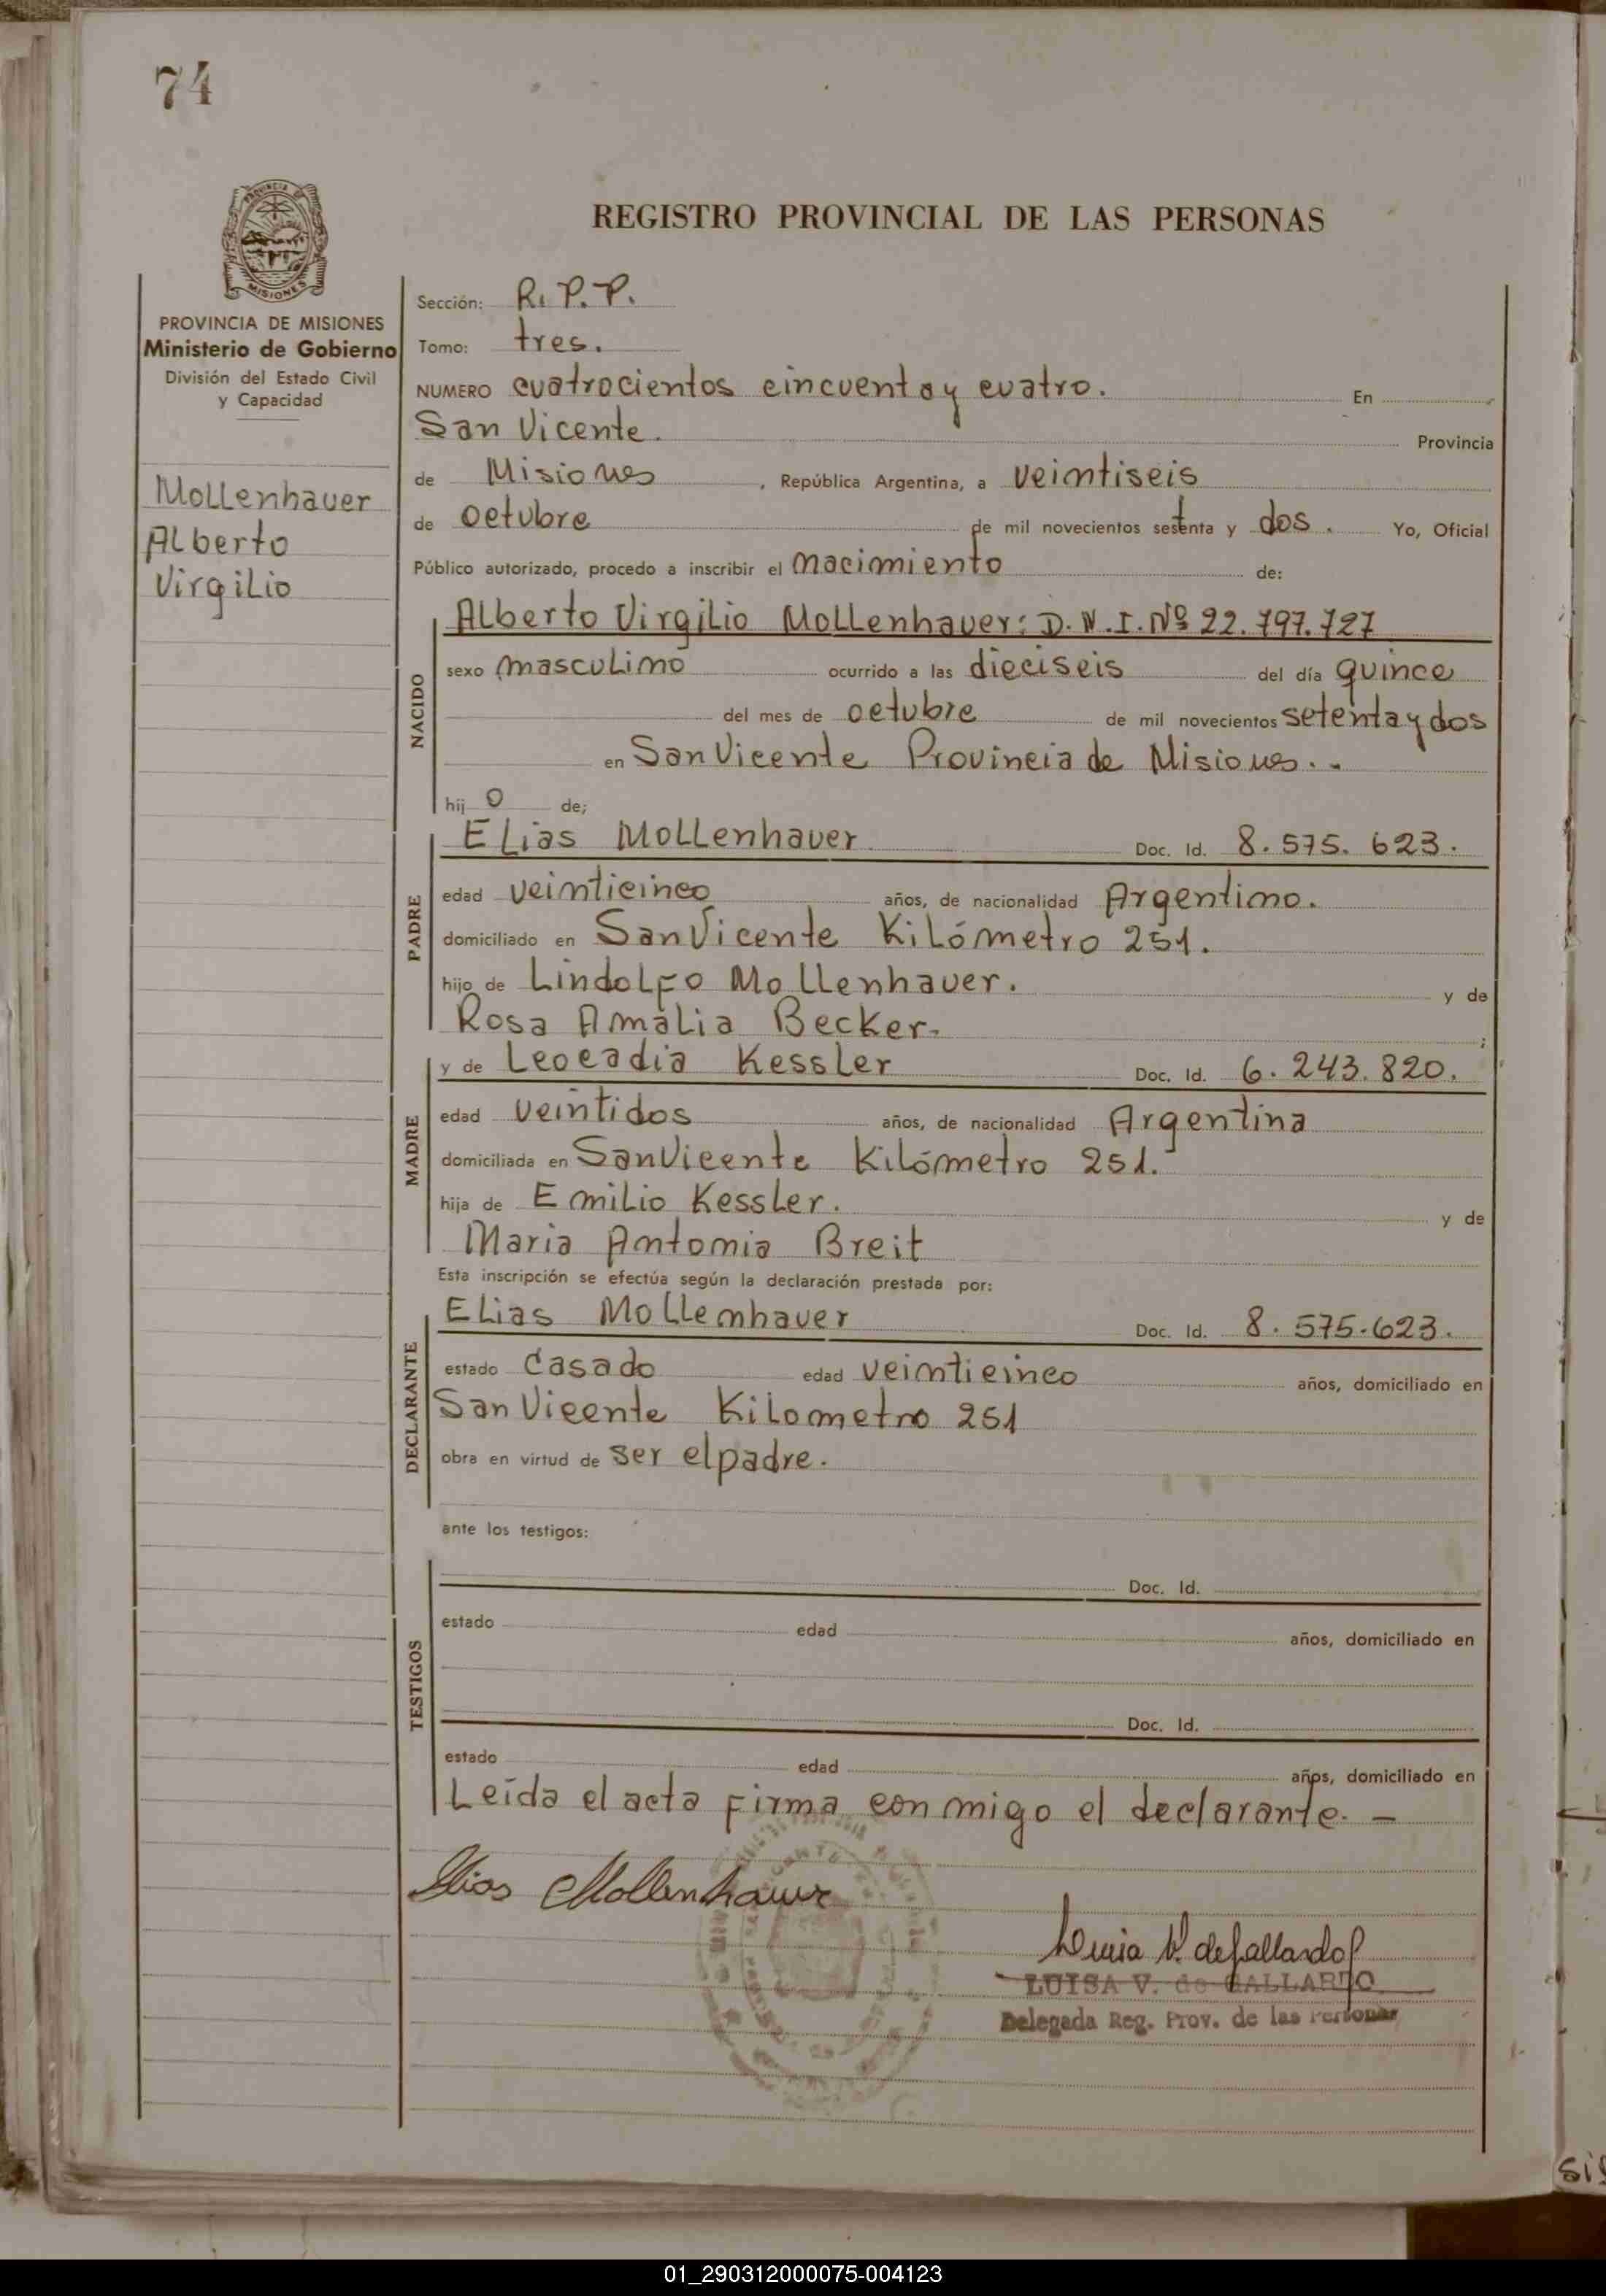 74
REGISTRO PROVINCIAL DE LAS PERSONAS
PROVINCIA DE
MISIONES
PROVINCIA DE MISIONES
Ministerio de Gobierno
División del Estado Civil
y Capacidad
Mollenhauer
Alberto
Virgilio
Sección: R. P. P.
Tomo: tres.
NUMERO cuatrocientos cincuenta y cuatro. En
San Vicente. Provincia
de Misiones, República Argentina, a veintiseis
de octubre de mil novecientos setenta y dos. Yo, Oficial
Público autorizado, procedo a inscribir el nacimiento de:
NACIDO
Alberto Virgilio Mollenhauer: D.N.I. Nº 22.797.727
sexo masculino ocurrido a las dieciseis del día quince
del mes de octubre de mil novecientos setenta y dos
en San Vicente Provincia de Misiones..
hij o de;
PADRE
Elias Mollenhauer Doc. Id. 8.575.623.
edad veinticinco años, de nacionalidad Argentino.
domiciliado en San Vicente Kilómetro 251.
hijo de Lindolfo Mollenhauer. y de
Rosa Amalia Becker. ;
MADRE
y de Leocadia Kessler Doc. Id. 6.243.820.
edad veintidos años, de nacionalidad Argentina
domiciliada en San Vicente Kilómetro 251.
hija de Emilio Kessler. y de
Maria Antonia Breit
Esta inscripción se efectúa según la declaración prestada por:
DECLARANTE
Elias Mollenhauer Doc. Id. 8.575.623.
estado Casado edad veinticinco años, domiciliado en
San Vicente Kilometro 251
obra en virtud de ser el padre.
ante los testigos:
TESTIGOS
Doc. Id.
estado edad años, domiciliado en
Doc. Id.
estado edad años, domiciliado en
Leída el acta firma conmigo el declarante. —
Elias Mollenhauer
Luisa V. de Gallardo
LUISA V. de GALLARDO
Delegada Reg. Prov. de las Personas
01_290312000075-004123